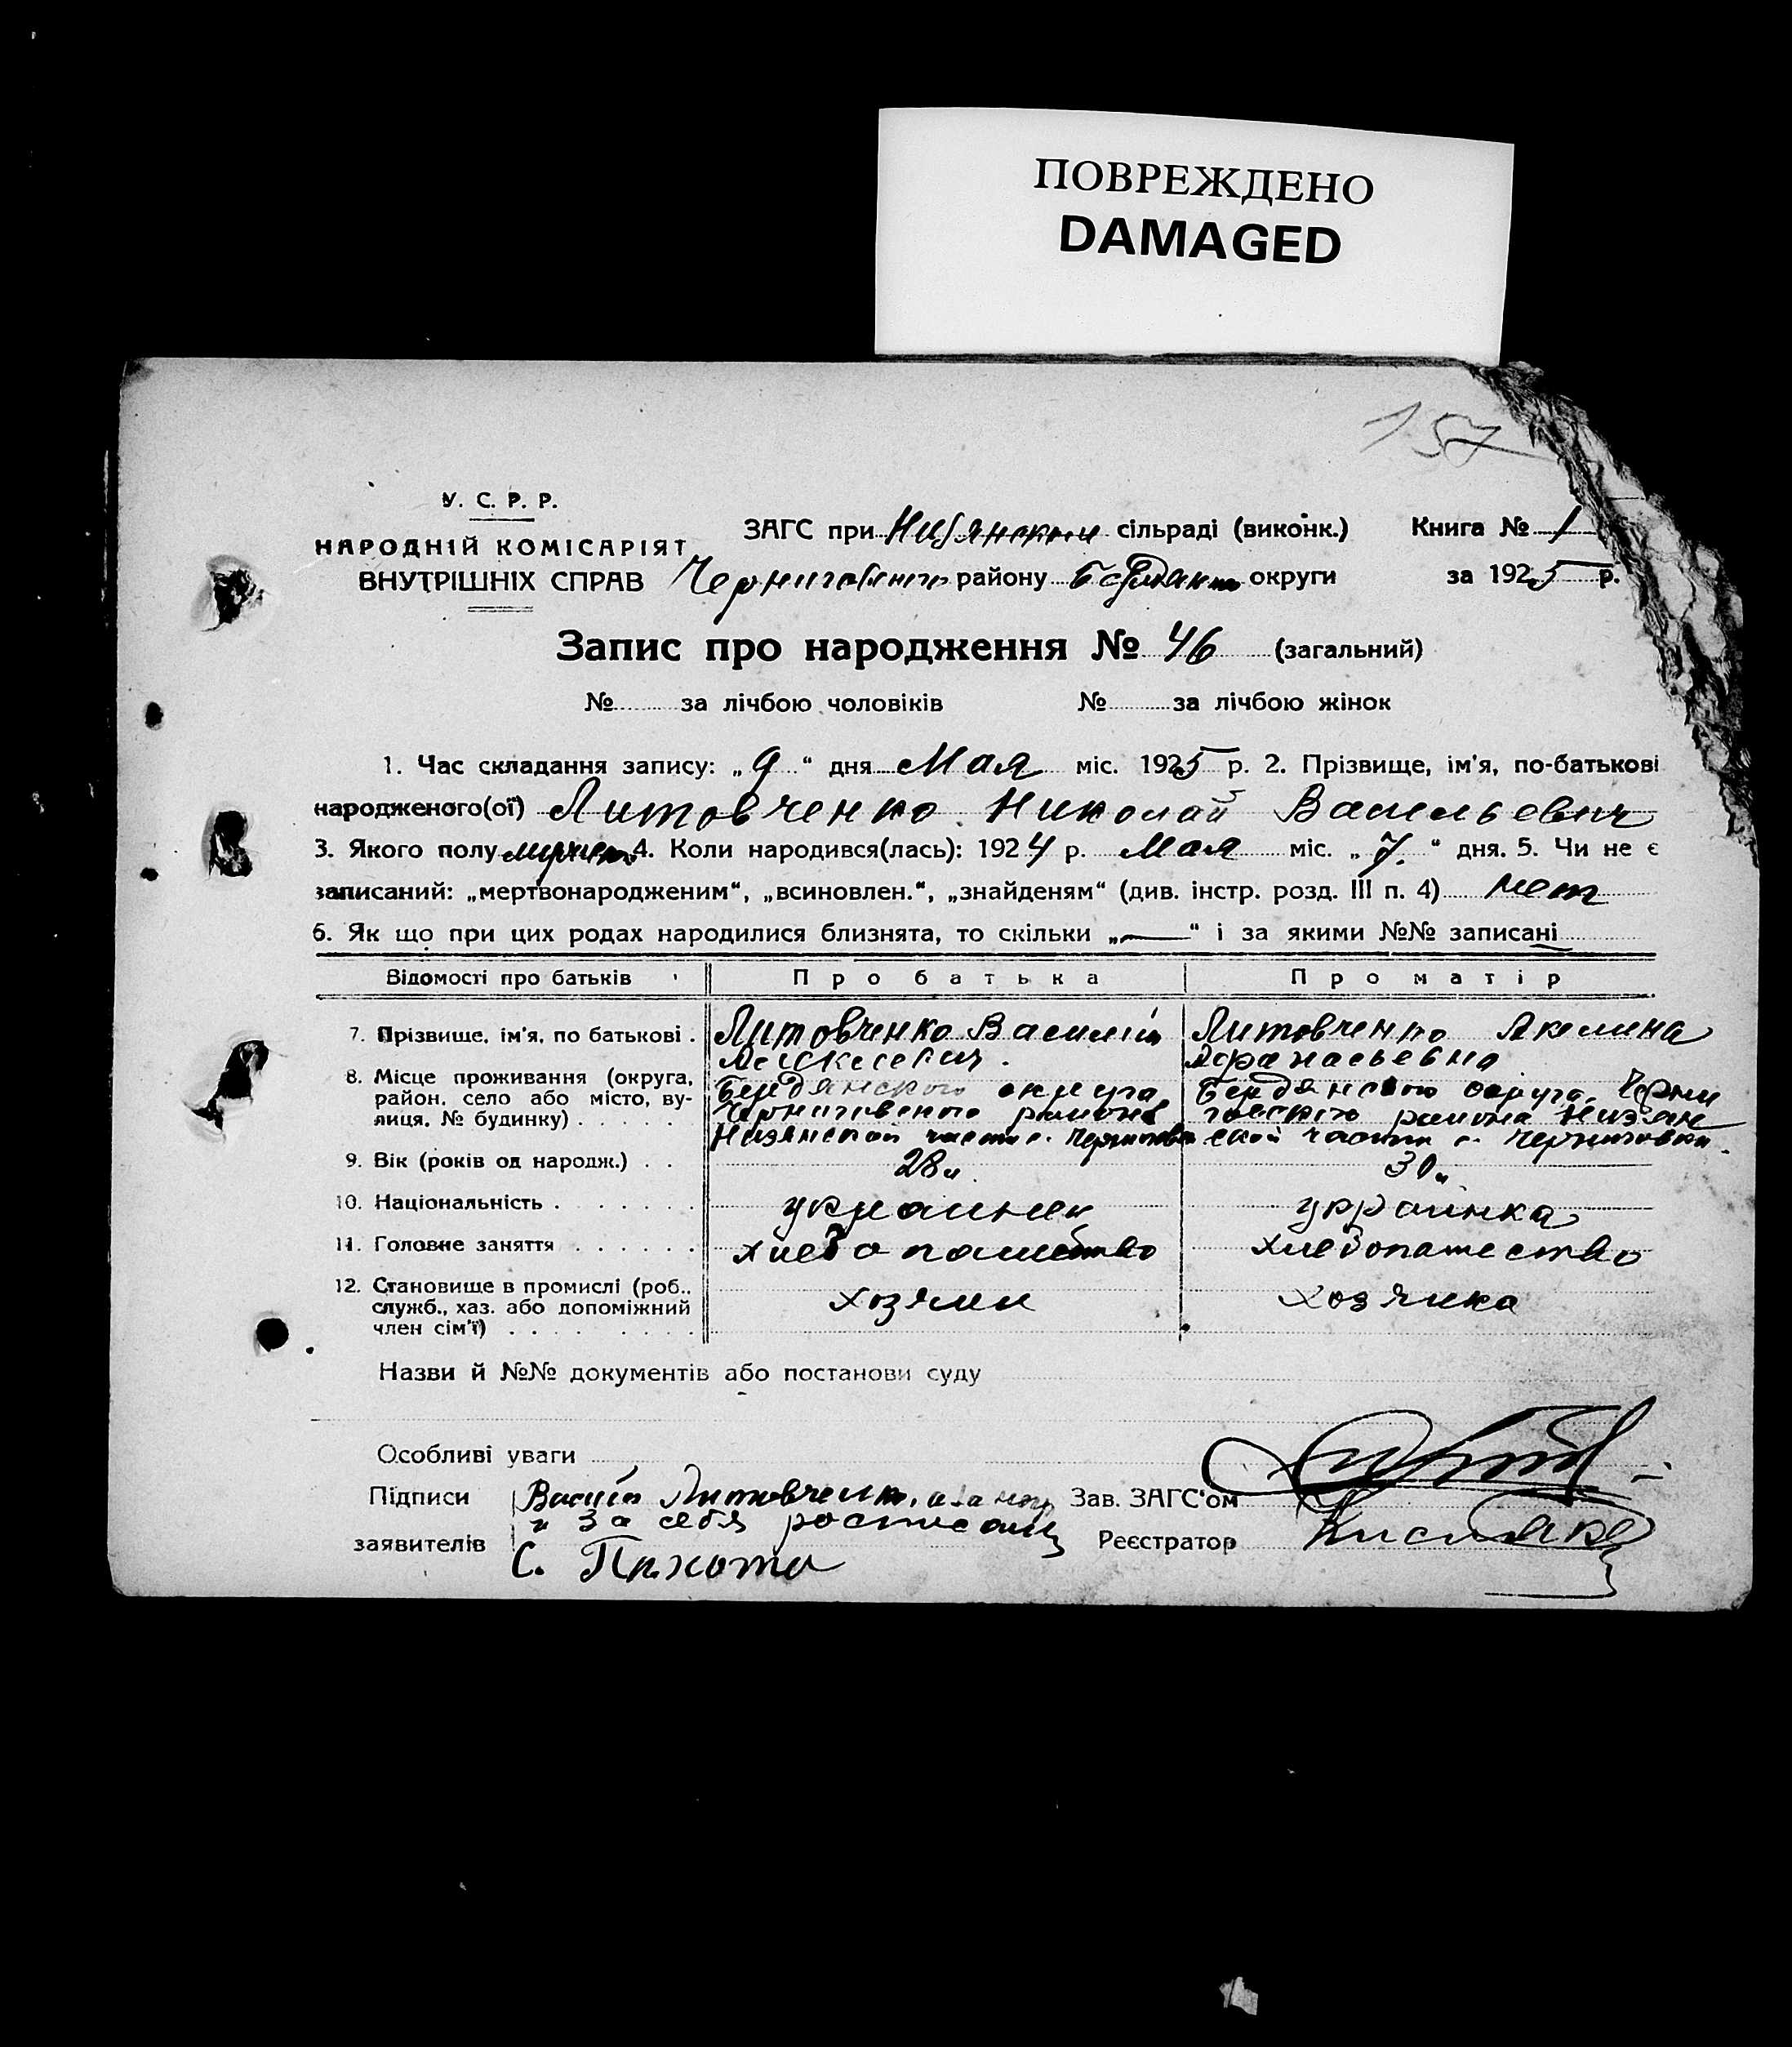 ПОВРЕЖДЕНО
DAMAGED
157
У. С. Р. Р.
НАРОДНІЙ КОМІСАРІЯТ
ВНУТРІШНІХ СПРАВ
ЗАГС при сільраді (виконк.) Книга № 1
района Бердянск округи за 1925 р.
Запис про народження № 46 (загальний)
№ за лічбою чоловіків № за лічбою жінок
1. Час складання запису: „9“ дня Мая міс. 1925 р. 2. Прізвище, ім'я, по-батькові
народженого(ої) Литовченко Николай Васильевич
3. Якого полу 4. Коли народився(лась): 1924 р. Мая міс. „7.“ дня. 5. Чи не є
записаний: „мертвонародженим“, „всиновлен.“, „знайденям“ (див. інстр. розд. III п. 4) нет
6. Як що при цих родах народилися близнята, то скільки „—“ і за якими №№ записані
Відомості про батьків Про батька Про матір
7. Прізвище, ім'я, по батькові . Литовченко Василий Литовченко Акелина
Афанасьевна
8. Місце проживання (округа, район, село або місто, вулиця, № будинку) . . . . . Бердянского округа Бердянского округа, Черни
Черниговского района говского района Низян
Низянской части с. Черниговка ской части с. Черниговки
9. Вік (років од народж.) . . 28 л. 30 л.
10. Національність . . . . . . . украинец украинка
11. Головне заняття . . . . . . хлебопашество хлебопашество
12. Становище в промислі (роб., служб., хаз. або допоміжний член сім'ї) . . . . . . . . хозяин хозяйка
Назви й №№ документів або постанови суду
Особливі уваги
Підписи Василий Литовченко, а за Зав. ЗАГС'ом
и за себя росписался
заявителів Реєстратор
С.